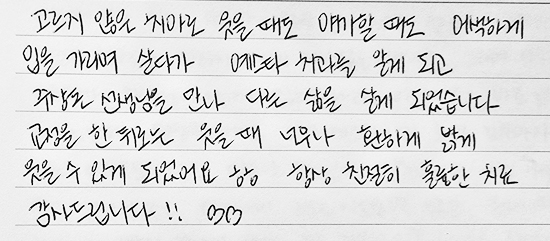 고르지 않은 치아로 웃을 때도 얘기할 때도 어색하게
입을 가리며 살다가 예스타 치과를 알게 되고
주상돈 선생님을 만나 다른 삶을 살게 되었습니다
교정을 한 뒤로는 웃을 때 너무나 환하게 밝게
웃을 수 있게 되었어요 항상 친절히 훌륭한 치료
감사드립니다 !! ♡♡